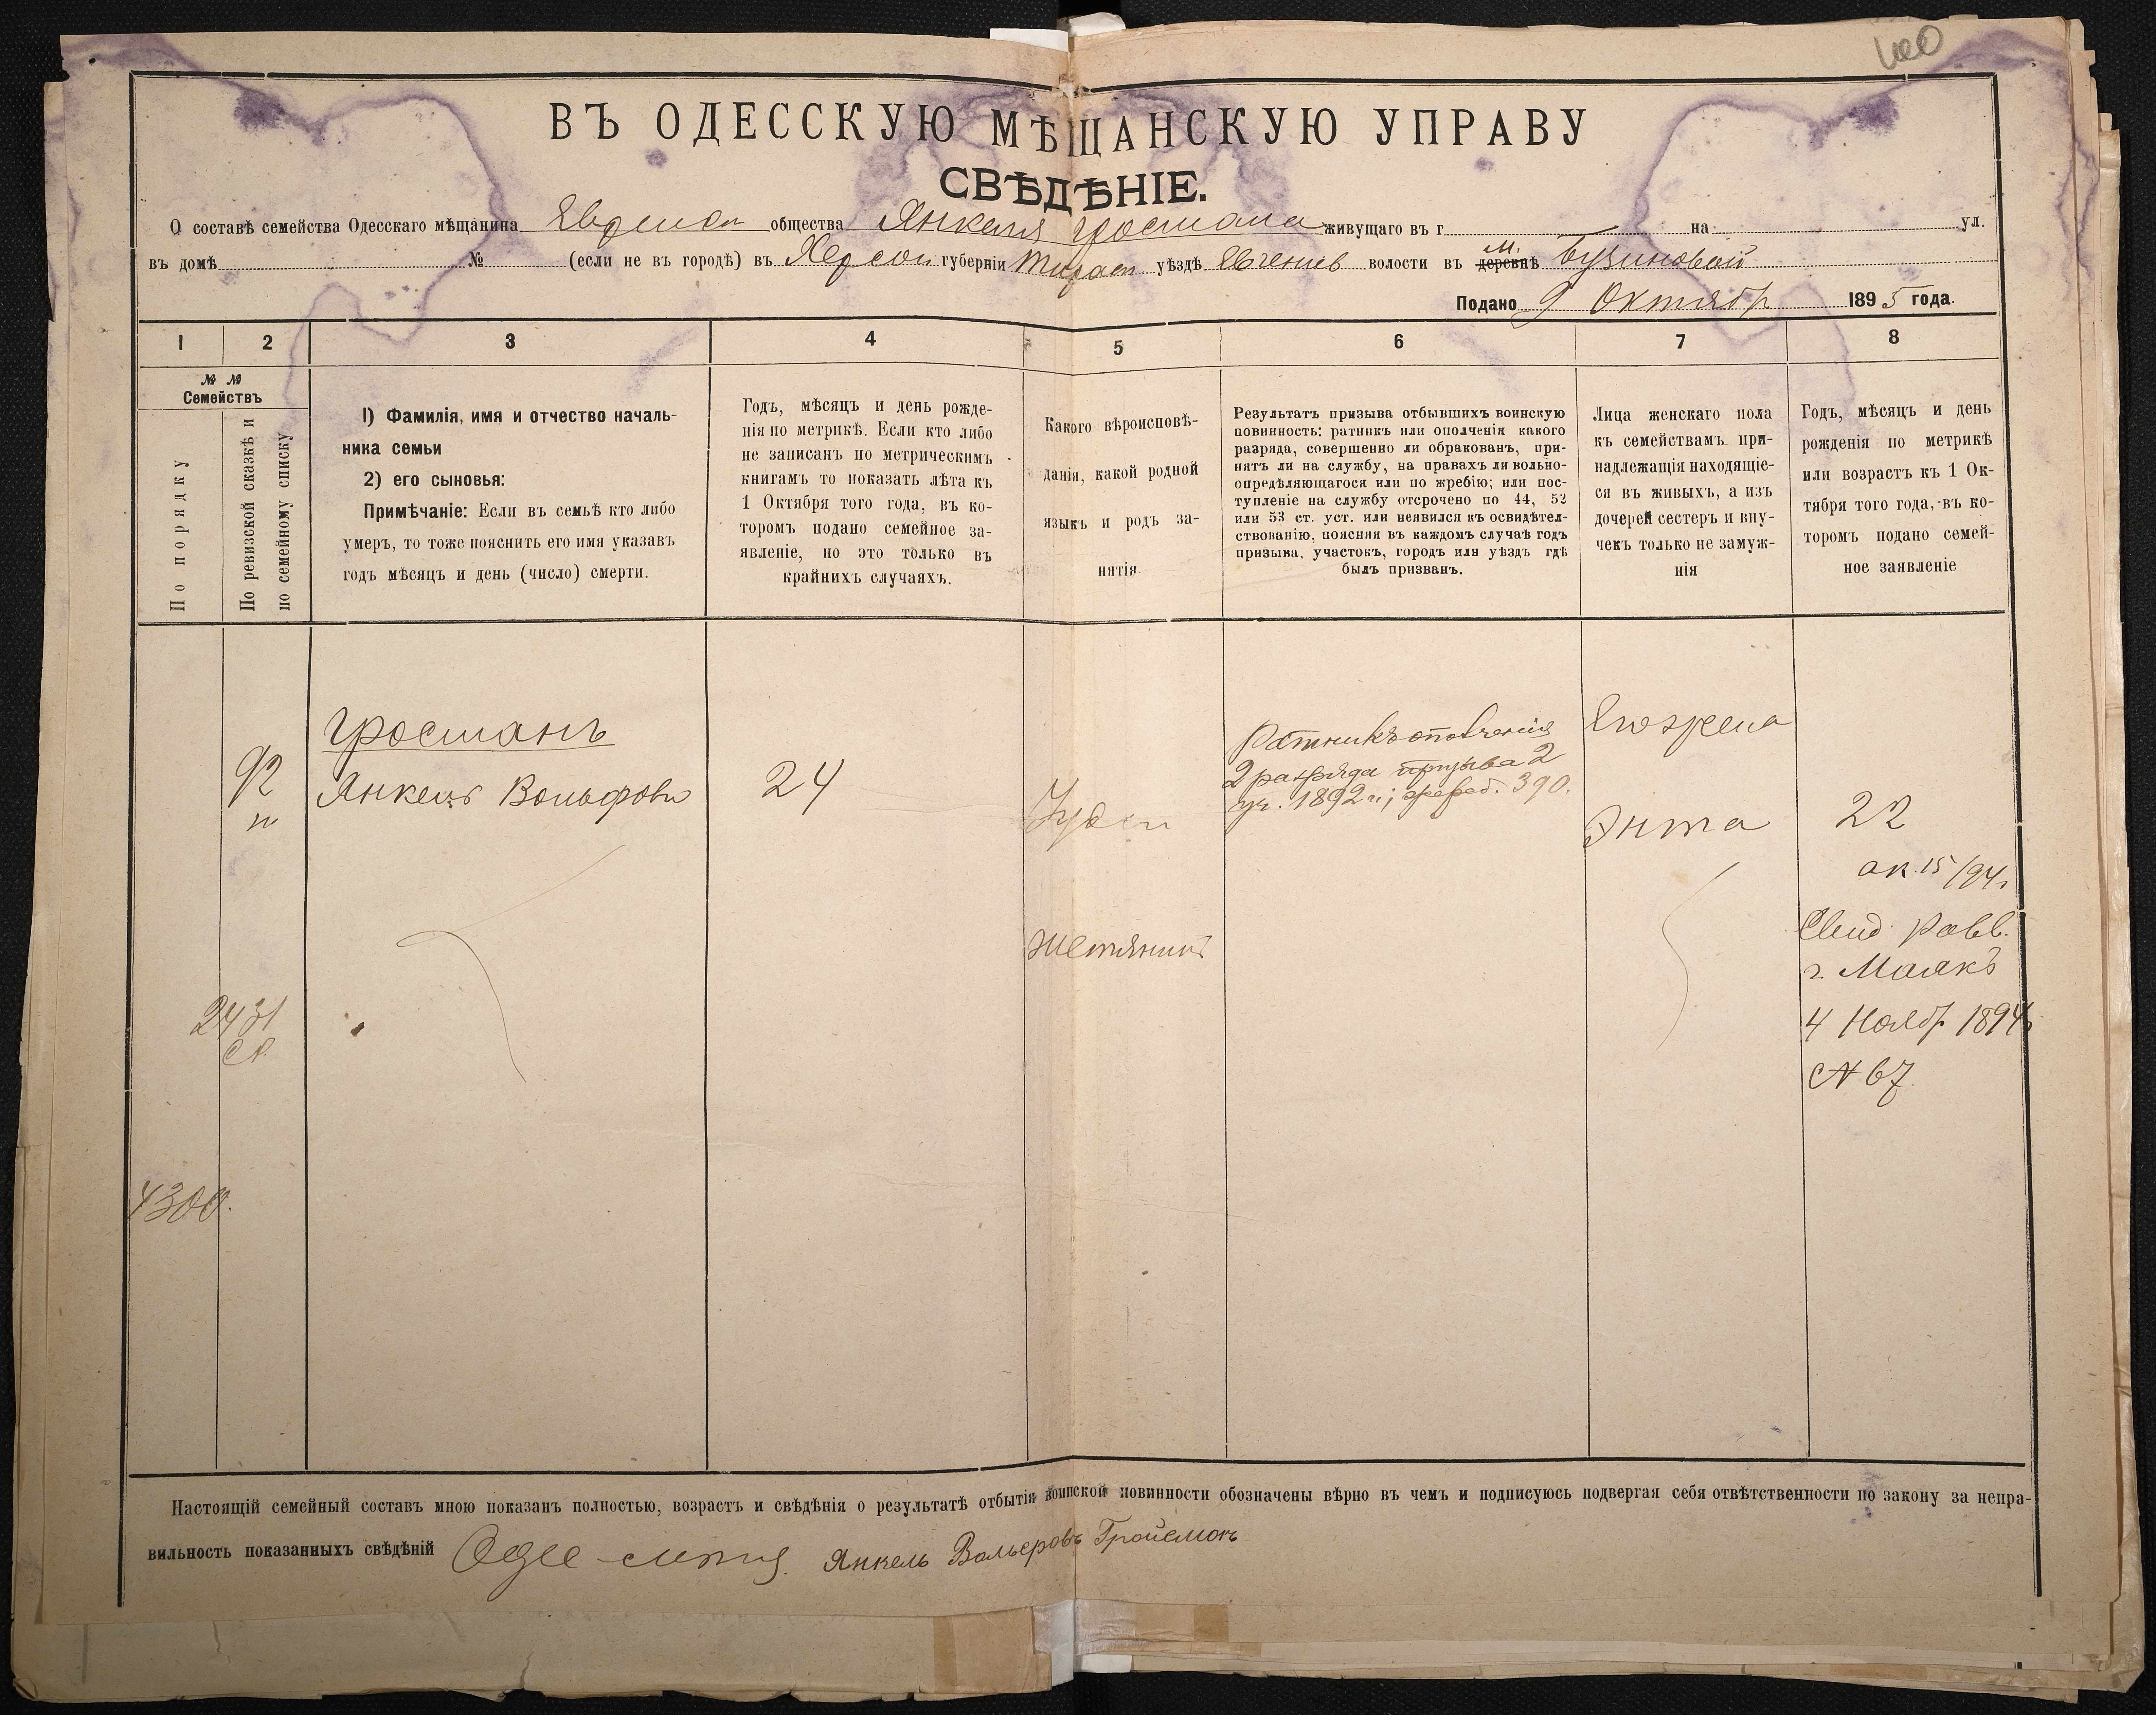 ВЪ ОДЕССКУЮ МѢЩАНСКУЮ УПРАВУ
СВѢДѢНІЕ.
О составѣ семейства Одесскаго мѣщанина Еврейск общества Янкеля Гросмана живущаго въ г на ул.
въ домѣ № (если не въ городѣ) въ Херсон губерніи Тирасп уѣздѣ Евгенев волости въ м. деревнѣ Бузиновой
Подано 9 Октябр 1895 года.
1 2 3 4 5 6 7 8
№ №
Семействъ
По порядку
По ревизской сказкѣ и
по семейному списку
1) Фамилія, имя и отчество началь-
ника семьи
2) его сыновья:
Примѣчаніе: Если въ семьѣ кто либо
умеръ, то тоже пояснить его имя указавъ
годъ мѣсяцъ и день (число) смерти.
Годъ, мѣсяцъ и день рожде-
нія по метрикѣ. Если кто либо
не записанъ по метрическимъ
книгамъ то показать лѣта къ
1 Октября того года, въ ко-
торомъ подано семейное за-
явленіе, но это только въ
крайнихъ случаяхъ.
Какого вѣроисповѣ-
данія, какой родной
языкъ и родъ за-
нятія
Результатъ призыва отбывшихъ воинскую
повинность: ратникъ или ополченія какого
разряда, совершенно ли обракованъ, при-
нятъ ли на службу, на правахъ ли вольно-
опредѣляющагося или по жребію; или пос-
тупленіе на службу отсрочено по 44, 52
или 53 ст. уст. или неявился къ освидѣтел-
ствованію, поясняя въ каждомъ случаѣ годъ
призыва, участокъ, городъ или уѣздъ гдѣ
былъ призванъ.
Лица женскаго пола
къ семействамъ при-
надлежащія находящіе-
ся въ живыхъ, а изъ
дочерей сестеръ и вну-
чекъ только не замуж-
нія
Годъ, мѣсяцъ и день
рожденія по метрикѣ
или возрастъ къ 1 Ок-
тября того года, въ ко-
торомъ подано семей-
ное заявленіе
92
Гросманъ
Янкель Вольфовъ
24
Іудей
Жестяникъ
Ратникъ ополченія
2 разряда призыва 2
уч. 1892 г.; жереб. 390.
Его жена
Энта
22
ак. 15/94г
Свид. Равв.
г. Маякъ
4 Ноябр 1894г
№ 67
2431
4300.
Настоящій семейный составъ мною показанъ полностью, возрастъ и свѣдѣнія о результатѣ отбытія воинской повинности обозначены вѣрно въ чемъ и подписуюсь подвергая себя отвѣтственности по закону за непра-
вильность показанныхъ свѣдѣній Янкель Вольфовъ Гройсмонъ